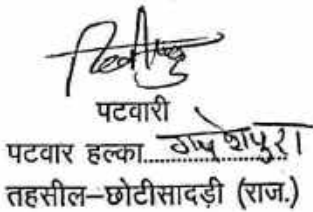 पटवारी
पटवार हल्का..........गणेशपुरा
तहसील–छोटीसादड़ी (राज.)